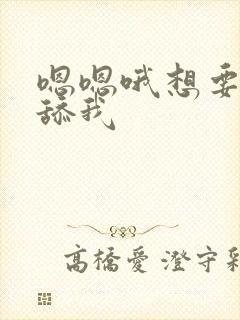 嗯嗯哦想要
舔我
高橋愛 澄守彩